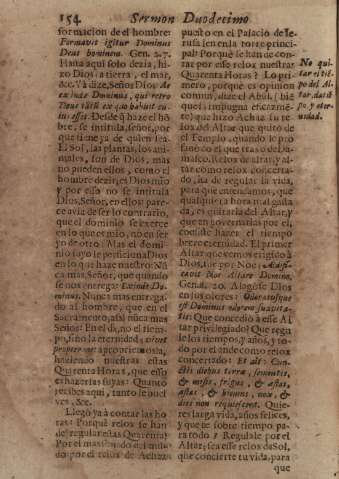 154. Sermon Duodecimo
formacion de el hombre:
Formavit igitur Dominus
Deus hominem. Gen. 2. 7.
Hasta aqui solo dezia, hi-
zo Dios a tierra, el mar,
&c. Yà dize, Señor Dios: Ac
exinde Dominus, qui retro
Deus tãtũ ex quo habuit cu-
ius esset. Desde q̃ haze el hõ-
bre, se intitula, señor, por
que tiene ya de quien sea.
El Sol, las plantas, los ani-
males, son de Dios, mas
no pueden ellos, como el
hombre dezir, es Dios mio
y por esso no se intitula
Dios, Señor, en ellos: pare-
ce avia de ser lo contrario,
que el dominio se exerce
en lo que es mio, no en ser
yo de otro. Mas el domi-
nio suyo le posiciona Dios
en lo que haze nuestro: Nũ-
ca mas Señor, que quando
se nos entrega: Exinde Do-
minus. Nunca mas entrega-
do al hombre, que en el
Sacramento, assi nunca mas
Señor: En el dà, no el tiem-
po, sino la eternidad; vivet
propter me: apropriemosla,
haciendo nuestras estas
Quarenta Horas, que esso
es hazerlas suyas: Quanto
recibes aqui, tanto le buel-
ves, &c.
Llegò yà à contar las ho-
ras: Porquè relox se han
de regular estas Quarenta?
por el relox de Achaz
puesto en el Palacio de Ie-
rusalen en la torre princi-
pal? Porquè se han de con-
tar por esse relox nuestras
Quarenta Horas? Lo pri-
mero, porque es opinion
comun, dize el Abul. (biẽ
que el impugna eficazmẽ-
te) que hizo Achaz su re-
lox del Altar que quitò de
el Templo, quando le pro-
fanò co el que traxo de Da-
masco. Relox de altar, y al-
tar como relox con concer-
tado, ha de regular la vida,
para que entendamos, que
qualquiera hora mal gasta-
da, es quitarla del Altar, y
que en governarlas por el,
consiste hazer el tiempo
breve eternidad. El primer
Altar que vemos erigido à
Dios, fue por Noe: Aedifi-
cavit Noe Altare Domino.
Genes. 20. Alogòse Dios
en los olores: Odoratusque
est Dominus odorem suavita-
tis: Que concediò à esse Al
tar privilegiado? Que regu
le los tiempos, y años, y to-
do por el ande como relox
concertado: Et ait: Con-
ctis diebus terræ, sementis,
& messis, frigus, & æstus,
æstas, & hiems, nox, &
dies non requiescent. Quie-
res larga vida, años felices,
y que te sobre tiempo pa-
ra todo? Regulale por el
Altar, sea esse relox de Sol,
que concierte tu vida, para
que
No qui-
tar el tiẽ-
po del Al-
tar, da tiẽ-
po, y eter-
nidad.